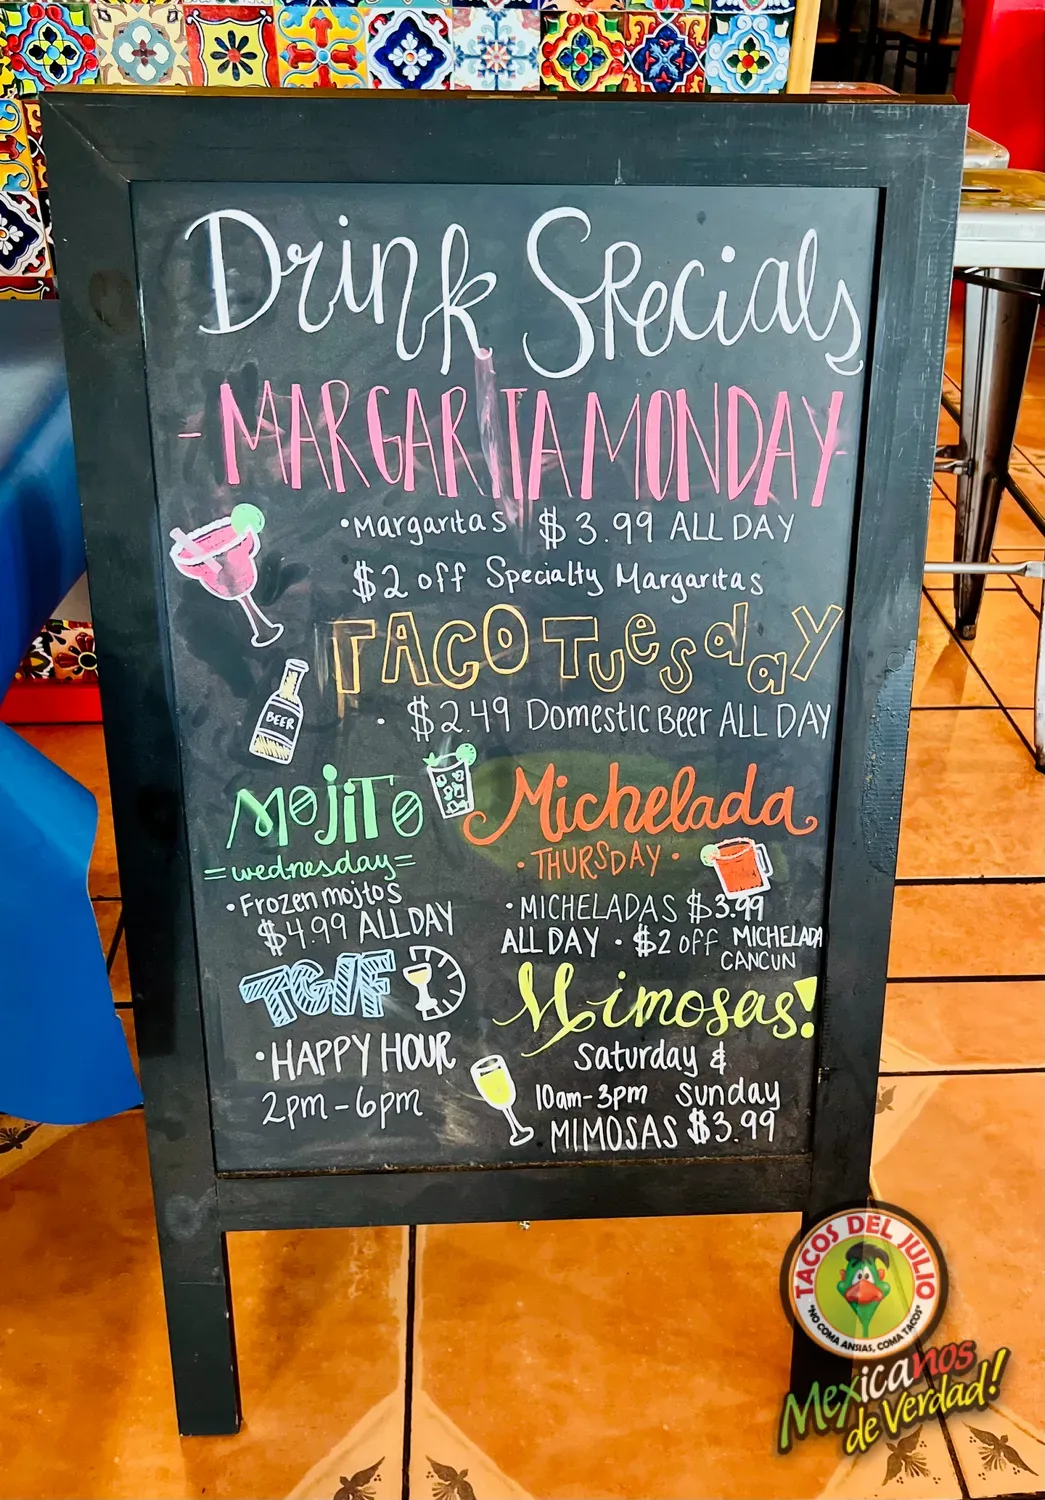 Drink Specials
-MARGARITA MONDAY-
•Margaritas $3.99 ALL DAY
$2 off Specialty Margaritas
TACO Tuesday
• $2.49 Domestic Beer ALL DAY
BEER
MOJITO
=wednesday=
•Frozen mojtos
$4.99 ALL DAY
Michelada
•THURSDAY•
•MICHELADAS $3.99
ALL DAY • $2 off MICHELADA
CANCUN
TGIF
•HAPPY HOUR
2pm-6pm
Mimosas!
Saturday &
10am-3pm Sunday
MIMOSAS $3.99
TACOS DEL JULIO
"NO COMA ANSIAS, COMA TACOS"
Mexicanos
de Verdad!